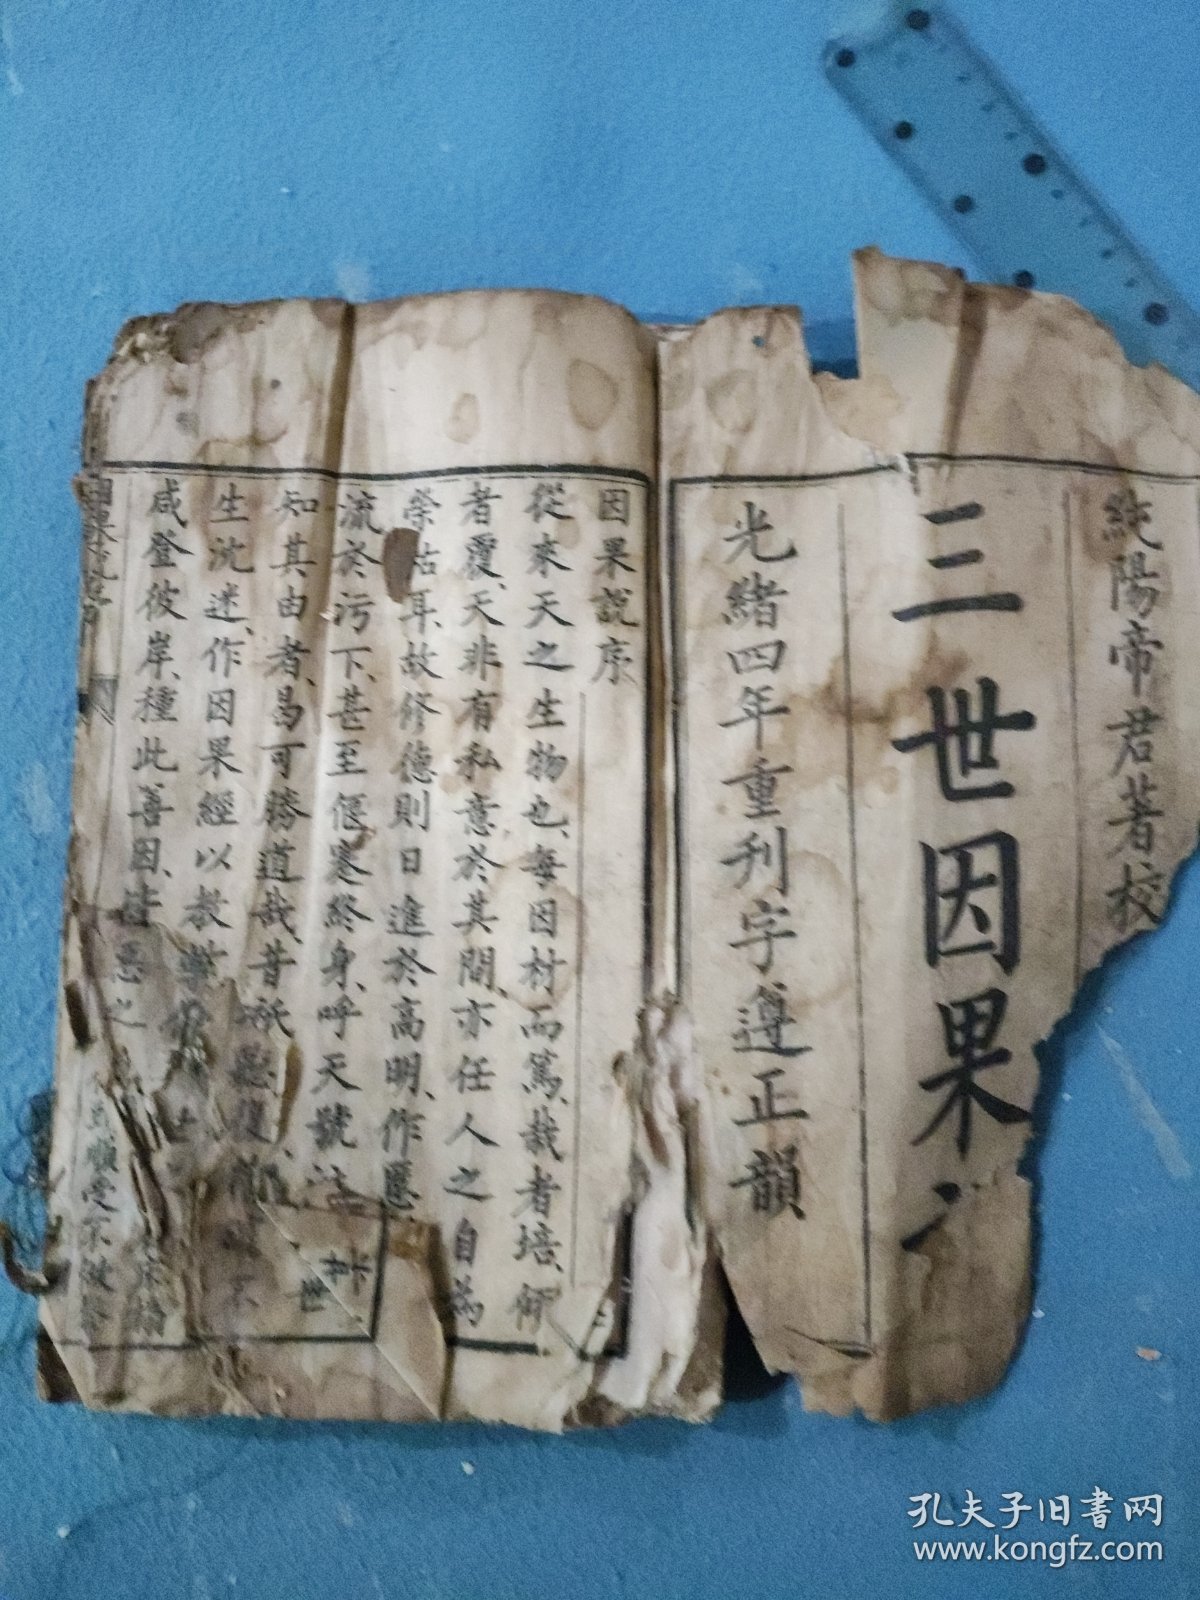 純陽帝君著校
三世因果
光緒四年重刋字遵正韻
因果說序
從來天之生物也、每因材而篤、栽者培、傾
者覆、天非有私意於其間、亦任人之自為
榮枯耳、故修德則日進於高明、作慝
流於污下、甚至偃蹇終身、呼天號泣
知其由者、曷可勝道哉、昔
生沈迷、作因果經以教
咸登彼岸、種此善因、惡之
因果說序
世
不
順受不做
孔夫子旧书网
www.kongfz.com